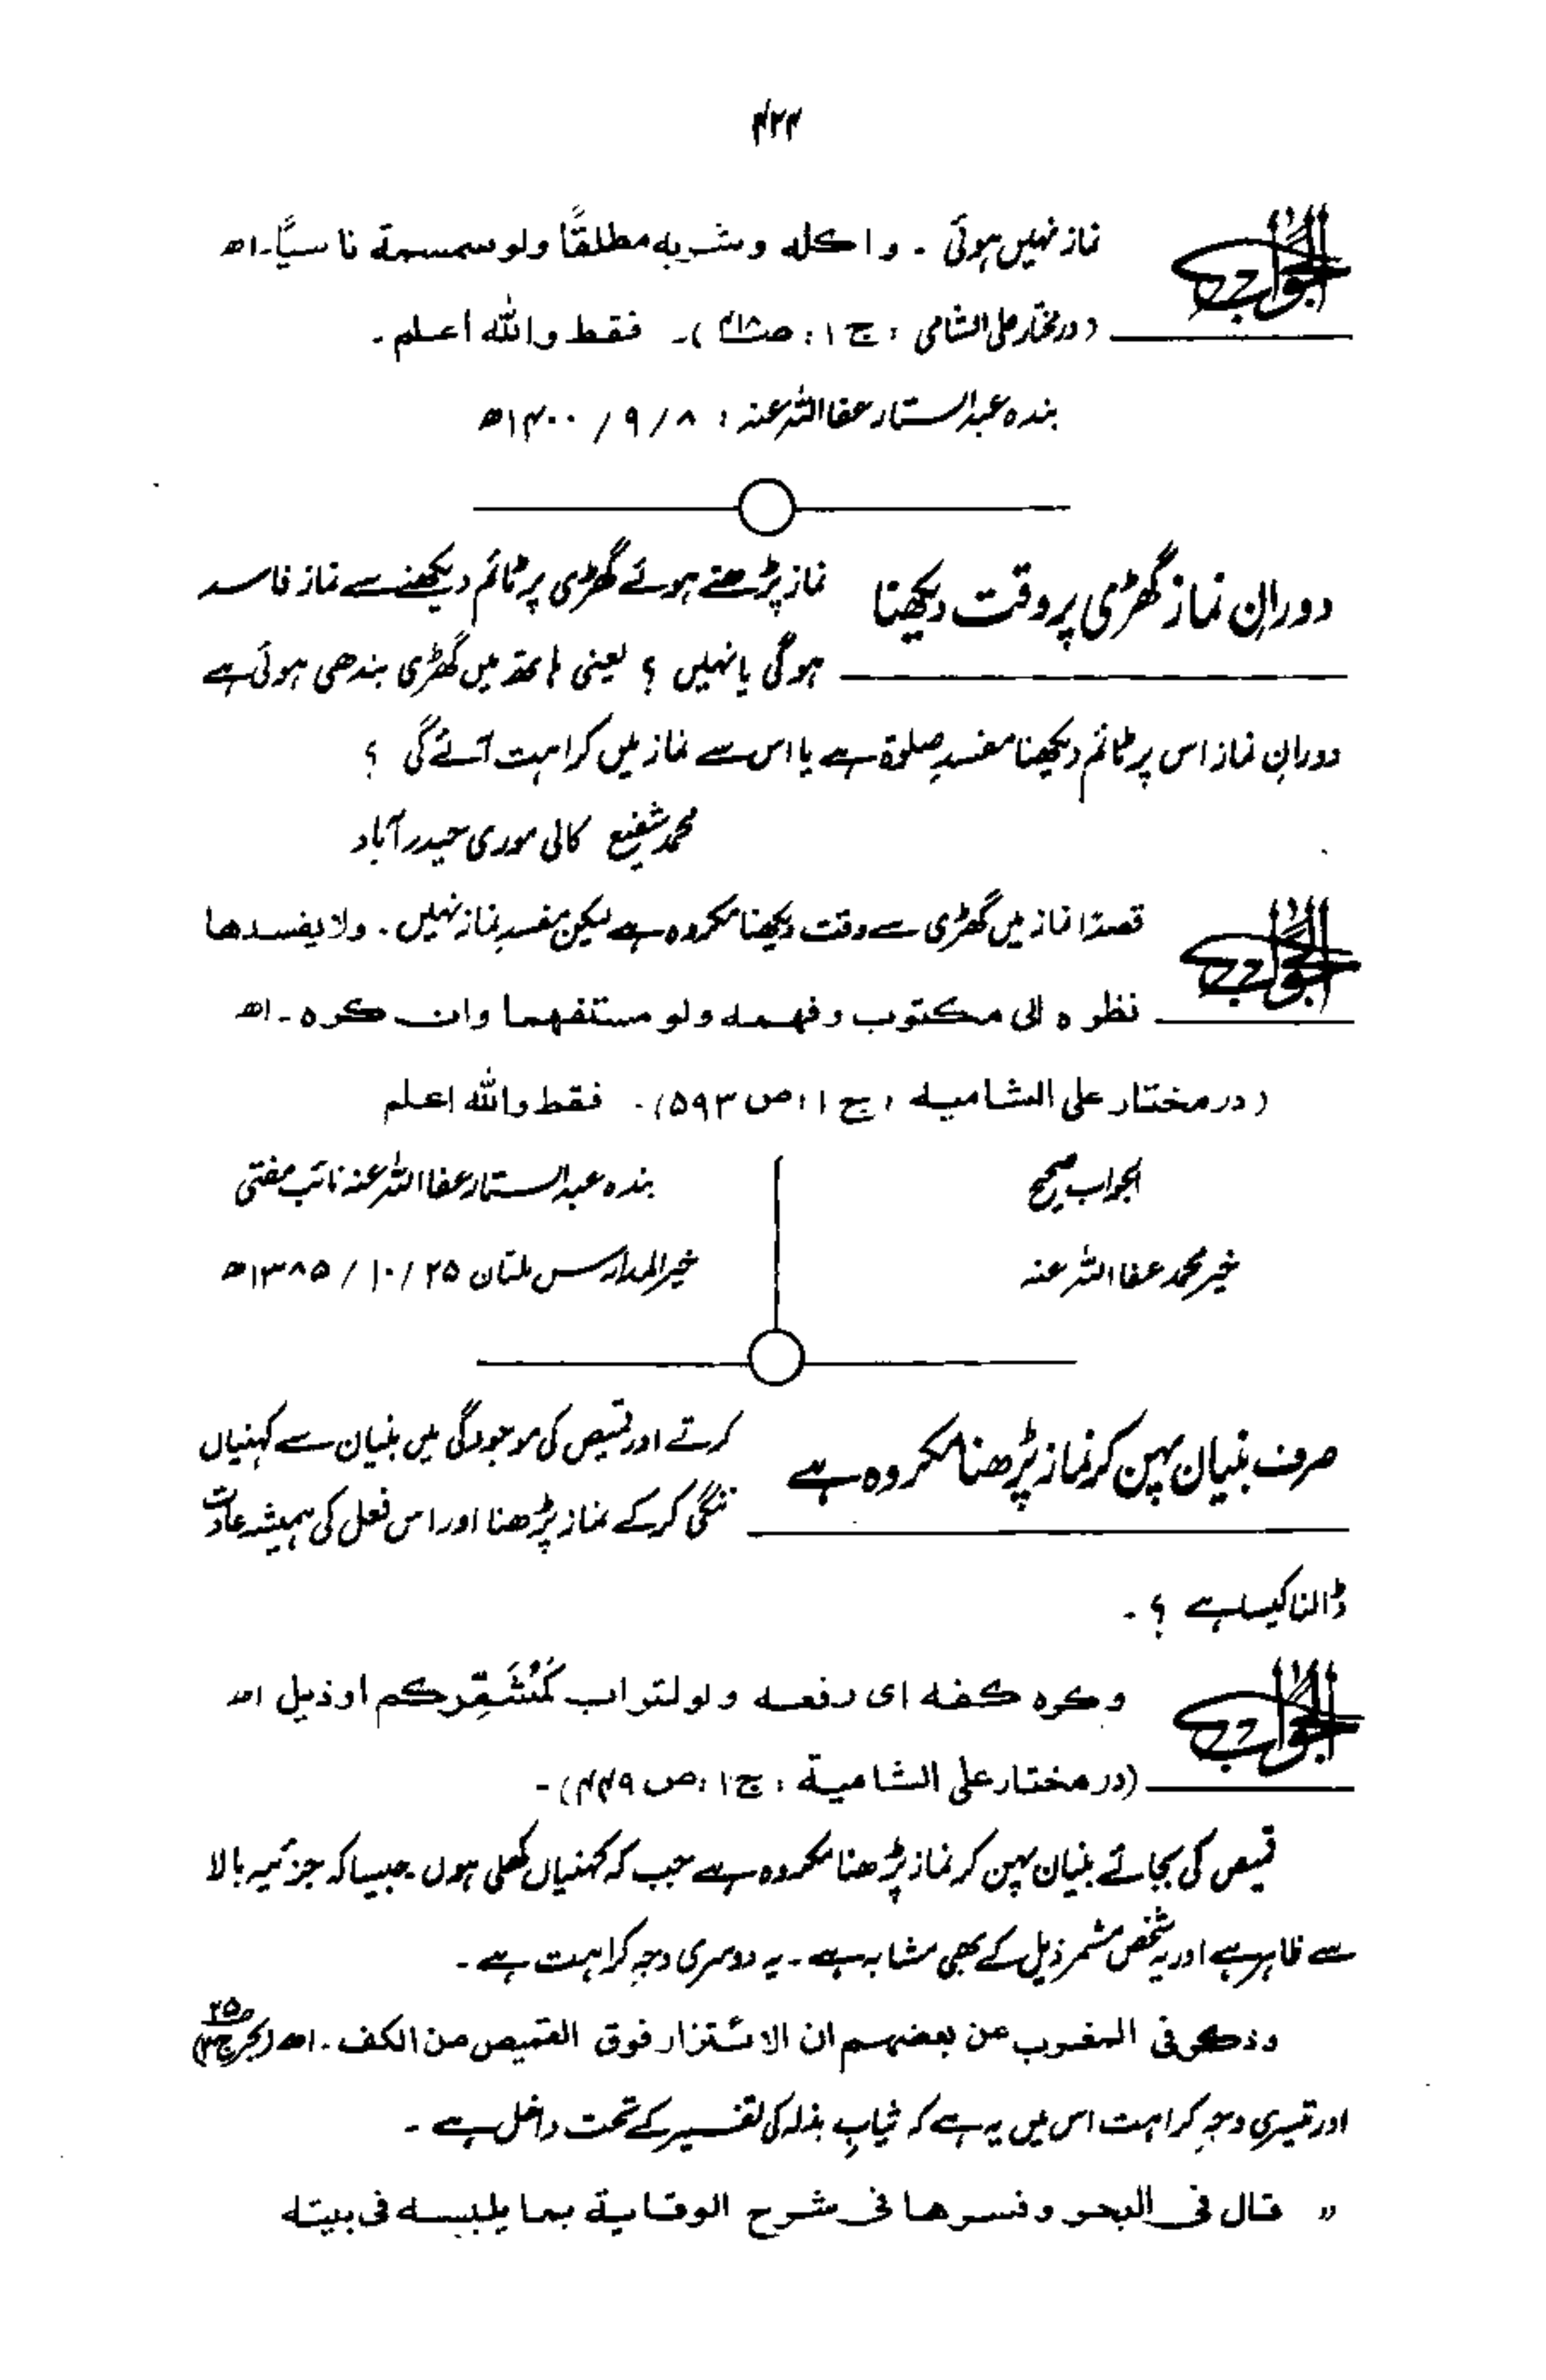 ۴۲۴
الجواب نماز نہیں ہوئی ۔ واكله وشربه مطلقًا ولو سمسمة ناسيًا۔اھ
(درمختار علی الشامی ، ج ۱ ، ) ۔ فقط واللہ اعلم ۔
بندہ عبدالستار عفا اللہ عنہ ، ۸ / ۹ / ۱۴۰۰ھ
دورانِ نماز گھڑی پر وقت دیکھنا نماز پڑھتے ہوئے گھڑی پر ٹائم دیکھنے سے نماز فاسد
ہوگی یا نہیں ؟ یعنی ہاتھ میں گھڑی بندھی ہوئی ہے
دورانِ نماز اس پر ٹائم دیکھنا مفسدِ صلوٰۃ ہے یا اس سے نماز میں کراہت آئے گی ؟
محمد شفیع کالی موری حیدر آباد
الجواب قصدًا نماز میں گھڑی سے وقت دیکھنا مکروہ ہے لیکن مفسدِ نماز نہیں ۔ ولا يفسدها
نظره الى مكتوب وفهمه ولو مستفهما وان كره ۔ اھ
(درمختار علی الشامیه ، ج ۱ ، ص ۵۹۳) ۔ فقط واللہ اعلم
الجواب صحیح
خیر محمد عفا اللہ عنہ
بندہ عبدالستار عفا اللہ عنہ نائب مفتی
خیر المدارس ملتان ۲۵ / ۱۰ / ۱۳۸۵ھ
صرف بنیان پہن کر نماز پڑھنا مکروہ ہے کرتے اور قمیص کی موجودگی میں بنیان سے کہنیاں
ننگی کرکے نماز پڑھنا اور اس فعل کی ہمیشہ عادت
ڈالنا کیسا ہے ؟ ۔
الجواب وكره كفه اى رفعه ولو لتراب كَمُشَمِّرِ كم او ذيل اھ
(درمختار علی الشامية ، ج ۱ ، ص ۴۴۹) ۔
قمیص کی بجائے بنیان پہن کر نماز پڑھنا مکروہ ہے جب کہ کہنیاں کھلی ہوں جیسا کہ جزئیہ بالا
سے ظاہر ہے اور یہ شخص مشمر ذیل کے بھی مشابہ ہے ۔ یہ دوسری وجہ کراہت ہے ۔
وذكر فی المغرب عن بعضهم ان الائتزار فوق القميص من الكف ۔ اھ (بحر ج۲ ص۲۵)
اور تیسری وجہِ کراہت اس میں یہ ہے کہ ثیابِ بذلہ کی تفسیر کے تحت داخل ہے ۔
" قال فی البحر وفسرها فی شرح الوقاية بما يلبسه فی بيته